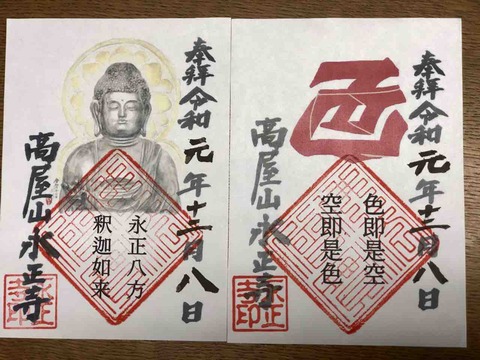 奉拝令和元年十二月八日
永正八方
釈迦如来
高屋山永正寺
永正
寺印
奉拝令和元年十二月八日
色即是空
空即是色
高屋山永正寺
永正
寺印